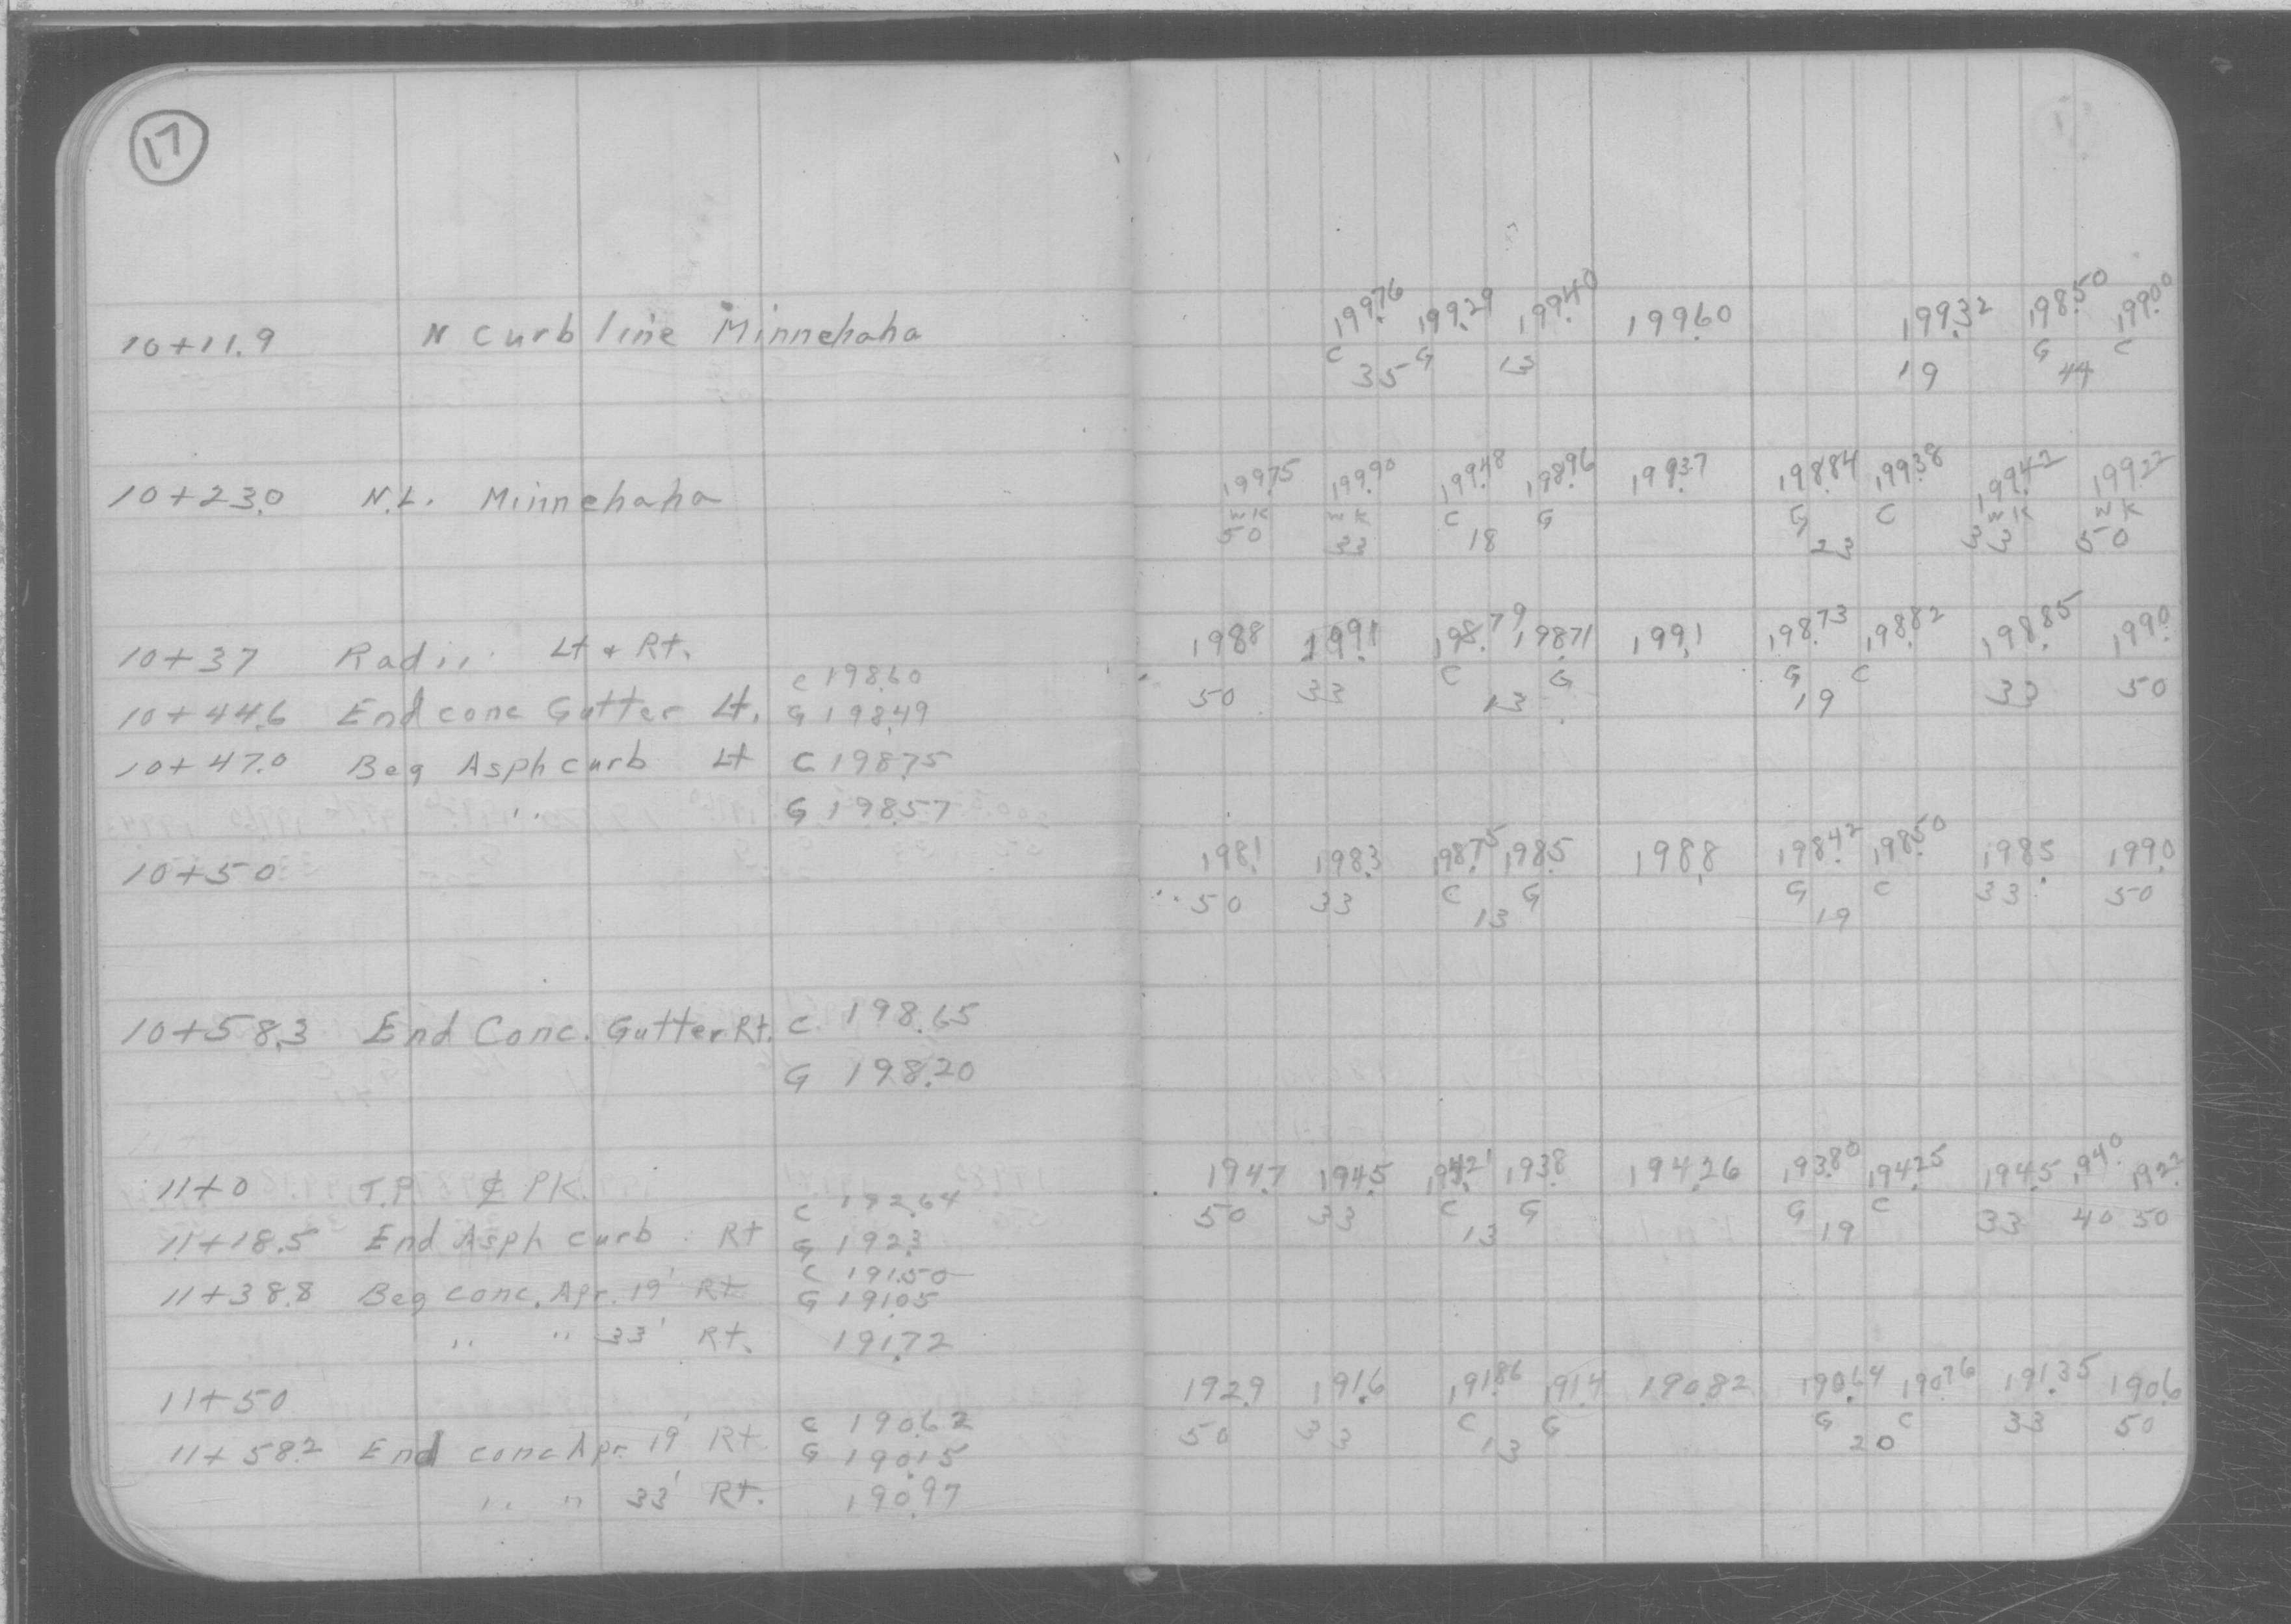 17
10+11.9 N Curb line Minnehaha 199.76 199.29 199.40 199.60 199.32 198.50 199.00
C 35 G 13 19 G 44 C
10+23.0 N.L. Minnehaha 199.75 199.90 199.48 198.96 199.37 198.84 199.38 199.42 199.22
WK WK C G G C WK WK
50 33 18 23 33 50
10+37 Radii Lt & Rt. 198.8 199.1 198.79 198.71 199.1 198.73 198.82 198.85 199.0
C 198.60 C G G C
10+44.6 End conc Gutter Lt. G 198.49 50 33 13 19 33 50
10+47.0 Beg Asph curb Lt C 198.75
" G 198.57
10+50 198.1 198.3 198.75 198.5 198.8 198.42 198.50 198.5 199.0
50 33 C 13 G G 19 C 33 50
10+58.3 End Conc. Gutter Rt. C 198.65
G 198.20
11+0 T.P. ₵ PK. 194.7 194.5 194.21 193.8 194.26 193.80 194.25 194.5 194.0 192.2
C 192.64 50 33 C 13 G G 19 C 33 40 50
11+18.5 End Asph curb Rt G 192.3
C 191.50
11+38.8 Beg conc. Apr. 19' Rt G 191.05
" " 33' Rt. 191.72
11+50 192.9 191.6 191.86 191.4 190.82 190.64 190.76 191.35 190.6
C 190.62 50 33 C 13 G G 20 C 33 50
11+58.2 End conc Apr. 19' Rt G 190.15
" " 33' Rt. 190.97